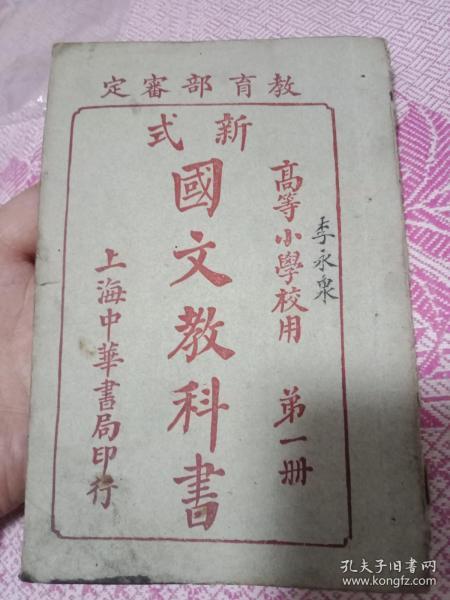 教育部審定
高等小學校用 第一冊
李永泉
新式
國文教科書
上海中華書局印行
孔夫子旧书网
www.kongfz.com